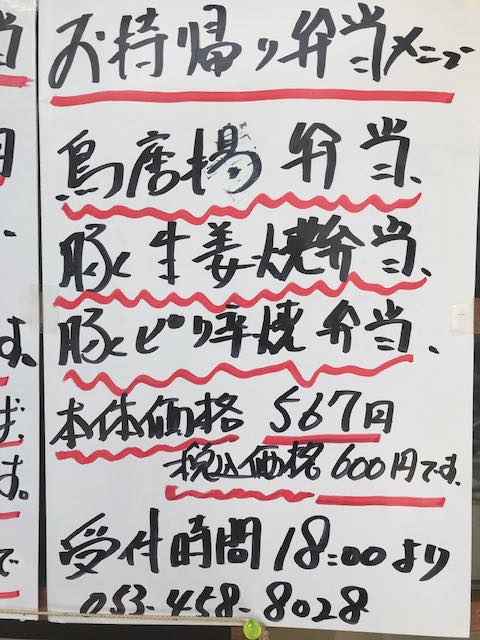 お持帰り弁当メニュー
鳥唐揚弁当、
豚生姜焼弁当、
豚ピリ辛焼弁当、
本体価格 567円
税込価格 600円です。
受付時間 18:00より
053-458-8028